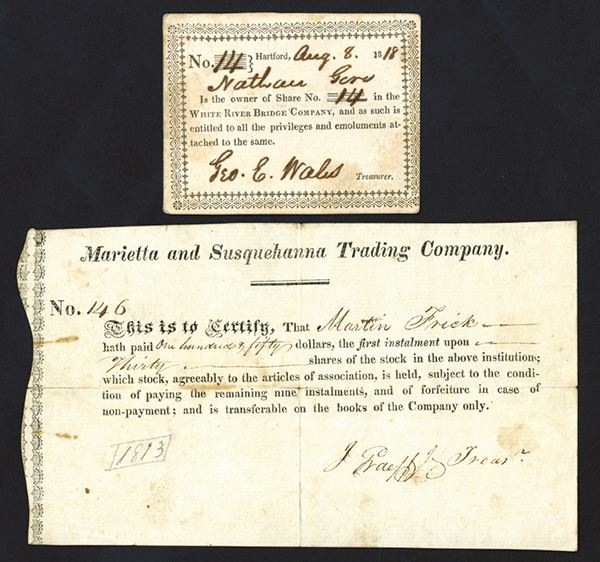 No. 14 } Hartford, Aug. 8. 1818
Nathan Gere
Is the owner of Share No. 14 in the
WHITE RIVER BRIDGE COMPANY, and as such is
entitled to all the privileges and emoluments at-
tached to the same.
Geo. E. Wales Treasurer.
Marietta and Susquehanna Trading Company.
No. 146
This is to Certify, That Martin Frick
hath paid One hundred & fifty dollars, the first instalment upon
Thirty shares of the stock in the above institution;
which stock, agreeably to the articles of association, is held, subject to the condi-
tion of paying the remaining nine instalments, and of forfeiture in case of
non-payment; and is transferable on the books of the Company only.
1813
J Graeff Jr Treasr.